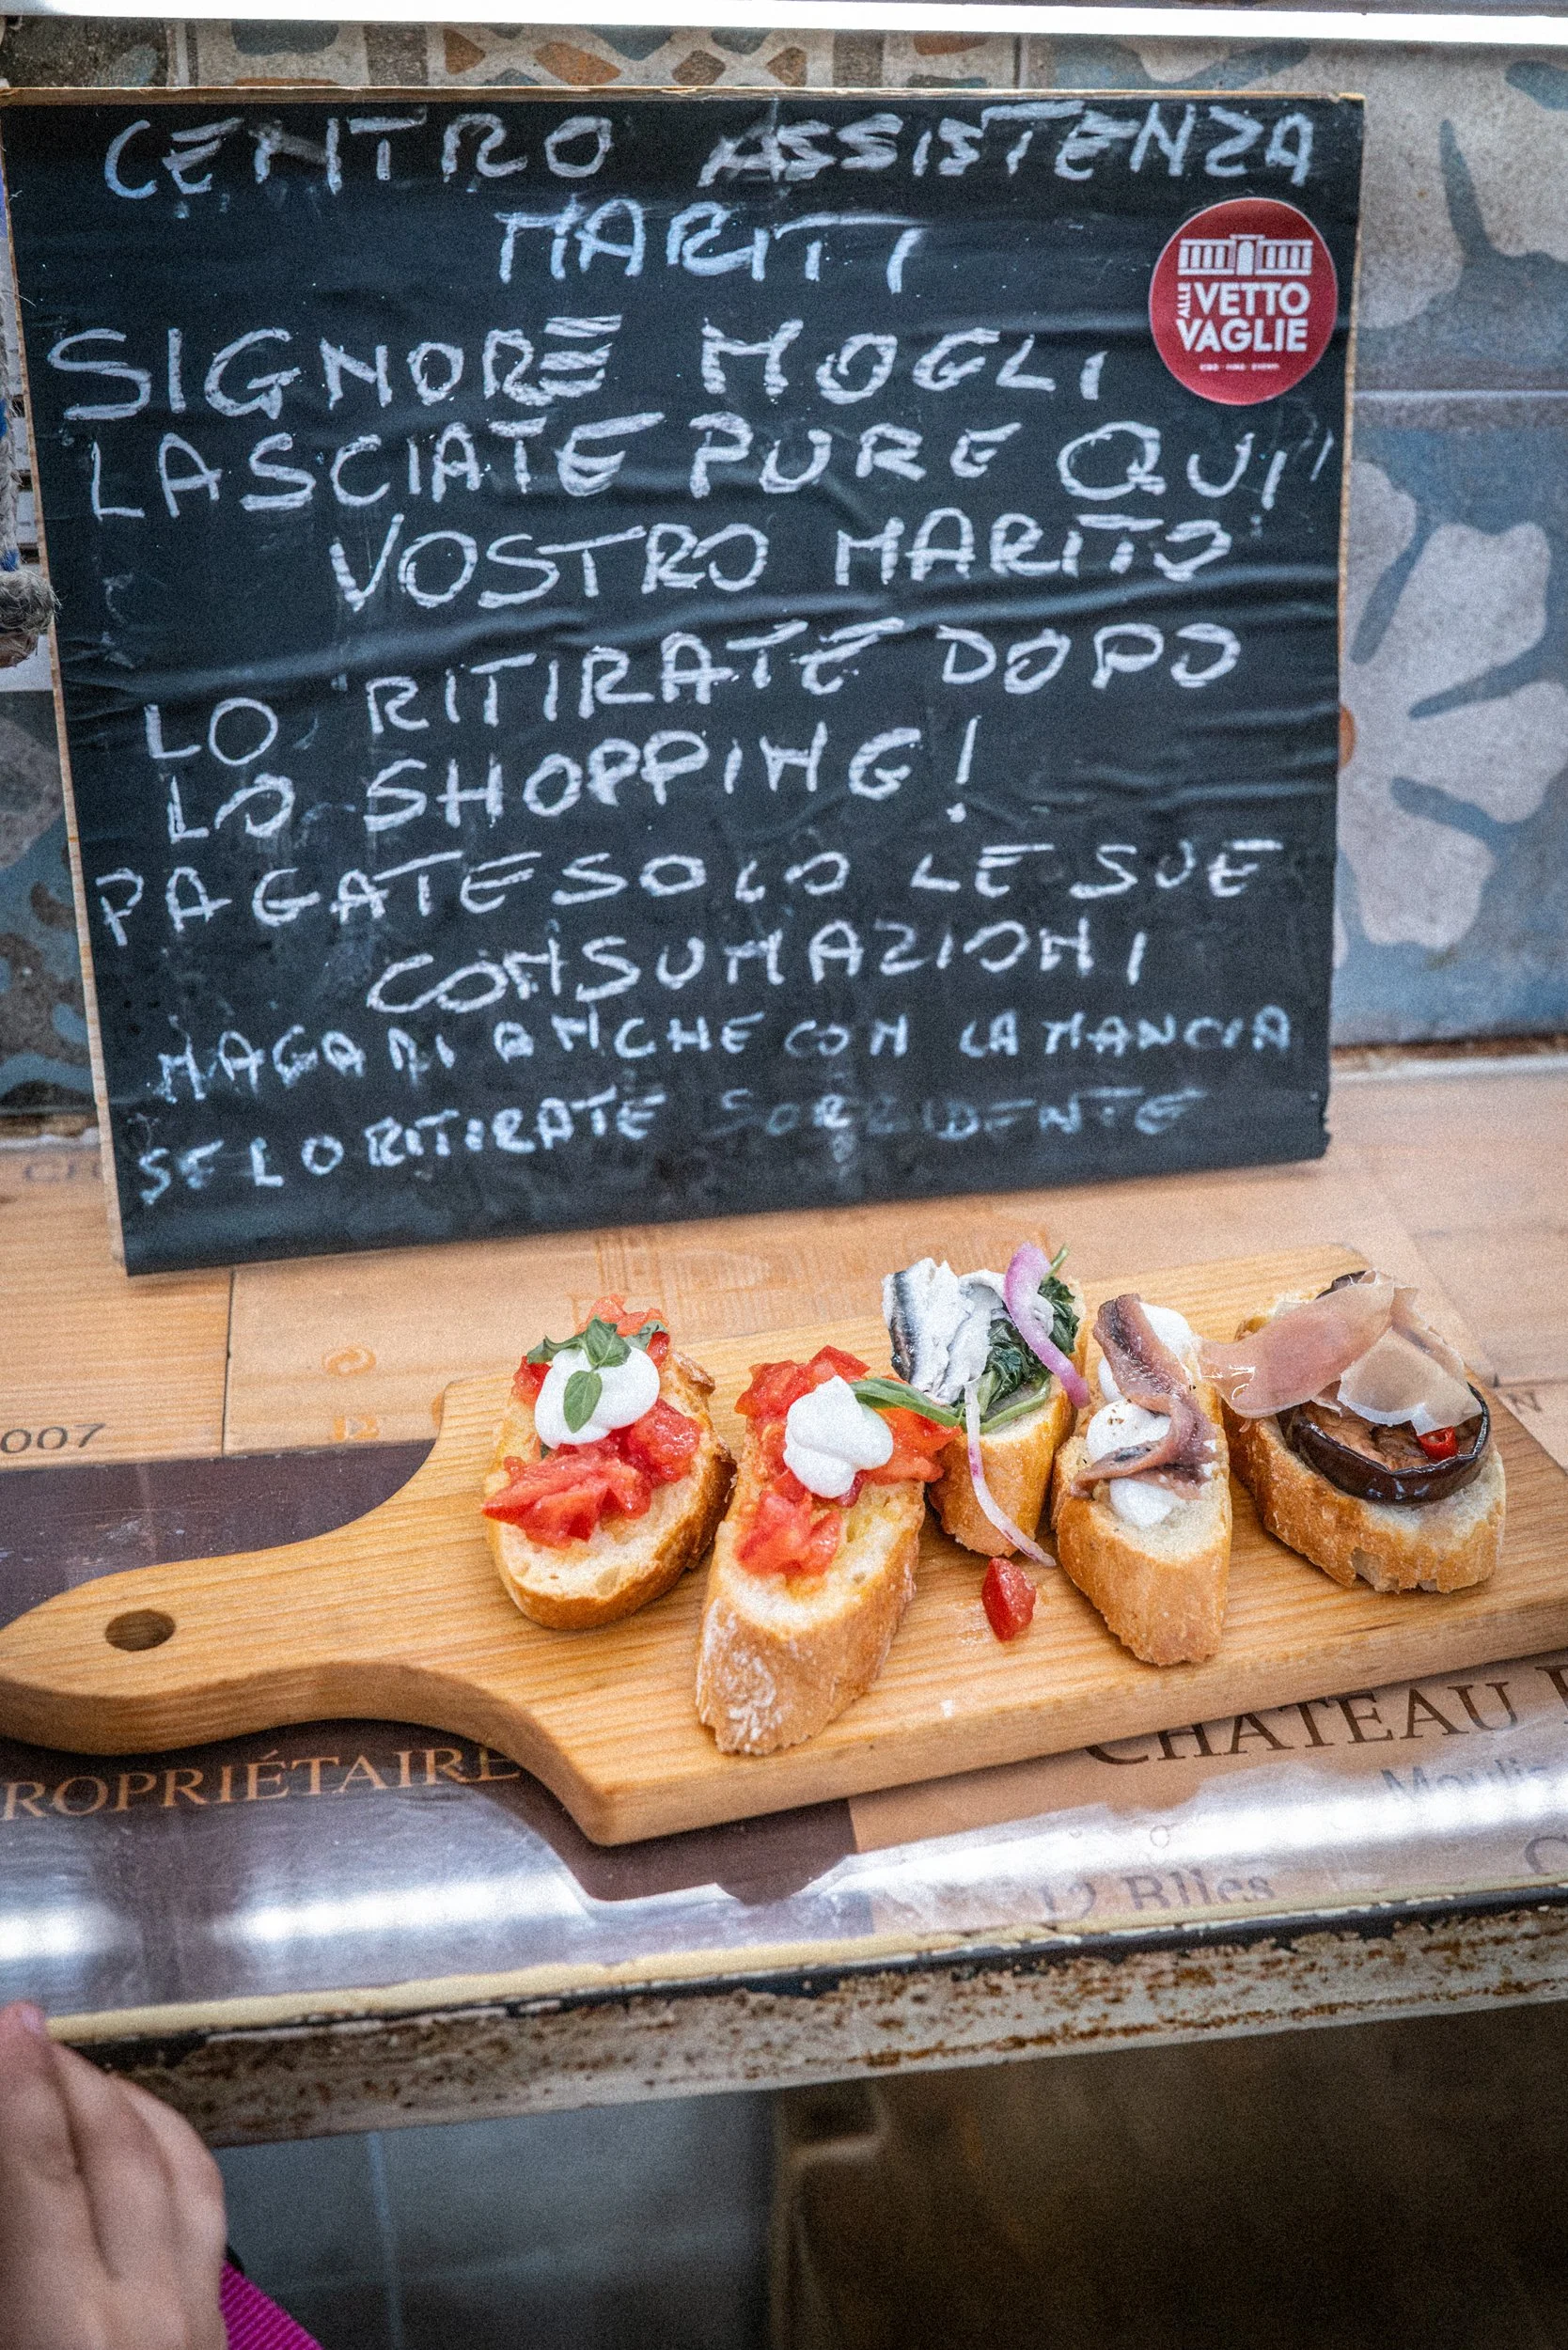 CENTRO ASSISTENZA
MARITI
ALLE VETTO
VAGLIE
SIGNORE MOGLI
LASCIATE PURE QUI'
VOSTRO MARITO
LO RITIRATE DOPO
LO SHOPPING!
PAGATE SOLO LE SUE
CONSUMAZIONI
MAGARI ANCHE CON LA MANCIA
SE LO RITIRATE SORRIDENTE
007
ROPRIÉTAIRE
CHATEAU
Moulis
12 Blles